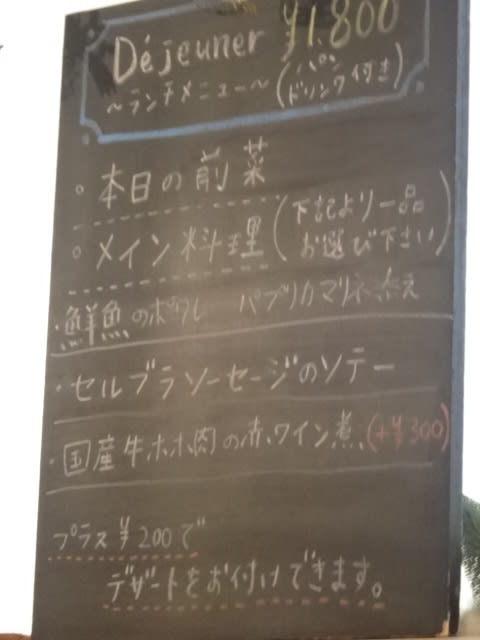 Déjeuner ¥1,800
～ランチメニュー～(パン
ドリンク付き)
。本日の前菜
。メイン料理(下記より一品
お選び下さい)
・鮮魚のポワレ パプリカマリネ添え
・セルブラソーセージのソテー
・国産牛ホホ肉の赤ワイン煮(+¥300)
プラス¥200で
デザートをお付けできます。